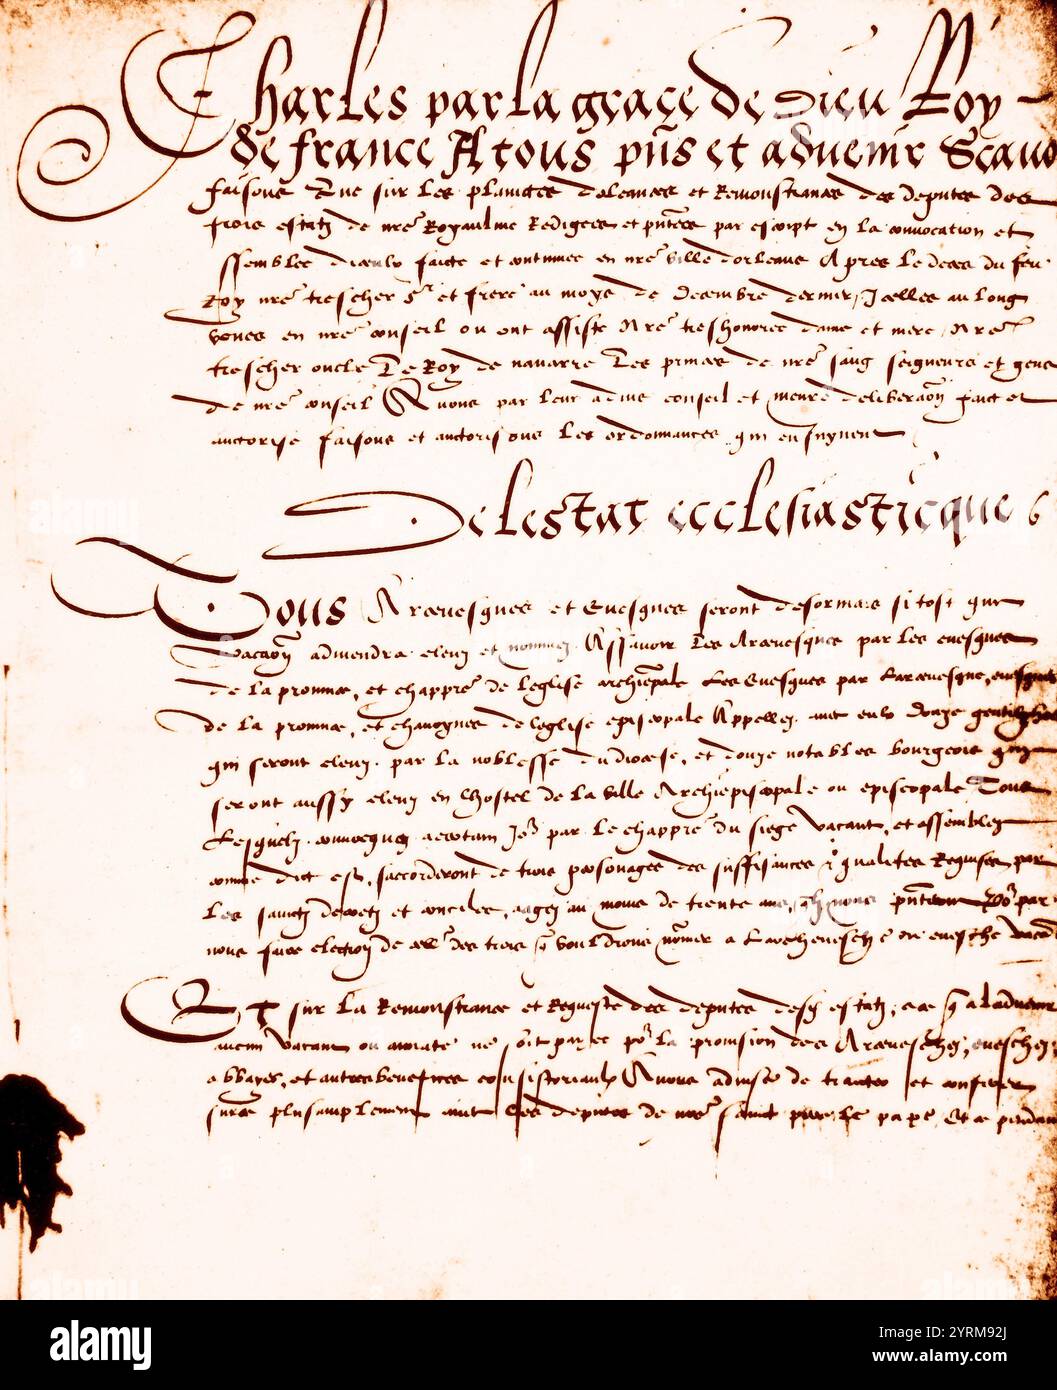 Charles par la grace de Dieu Roy
de france A tous pns et advenir Scavo
faisons Que sur les plainctes doleances et Remonstrances des deputes des
trois estatz de nre Royaulme Redigees et pntees par escript en la convocation et
ssemblee diceulx faicte et continuee en nre ville dorleans Apres le deces du feu
Roy nre trescher Sr et frere au moys de Decembre dernier, Icelles au long
veues en nre conseil ou ont assiste Nre treshonoree dame et mere, Nre
trescher oncle Le Roy de navarre Les princes de nre sang seigneurs et gens
de nre conseil Avons par leur advis conseil et meure deliberaon faict et
auctorise faisons et auctorisons les ordonnances qui ensuyvent
De lestat ecclesiasticque
Tous Arcevesques et Evesques seront desormais si tost que
vacaon adviendra eleuz et nommez Assavoir Les Arcevesques par les evesques
de la province, et chappre de leglise archiepale Les Evesques par Larcevesque, evesques
de la province, et chanoynes de leglise episcopale Appellez avec eulx Douze gentilzho
qui seront eleuz par la noblesse du diocese, et douze notables bourgeois qui
seront aussy eleuz en lhostel de la ville Archiepiscopale ou episcopale Tous
Lesquelz convocquez a certain Jor par le chappre du siege vacant, et assemblez
comme dict est, saccorderont de trois personages des suffisances et qualites Requises par
les sainctz decretz et conciles, agez au moins de trente ans, quilz nous pnteront por par
nous faire election de celluy des trois que vouldrons nomer a Larchevesche ou evesche vacant
Et sur la Remonstrance et Requeste des deputes desdz estatz, a ce que a ladvenir
aucun vacant ou annate ne soit paree por la provision des Arceveschez, eveschez,
abbayes, et autres benefices consistoriaulx Avons advise de traicter et conferer
sur ce plus amplement avec les deputes de nre sainct pere le pape, Et ce pendan
alamy
Image ID: 2YRM92J
www.alamy.com